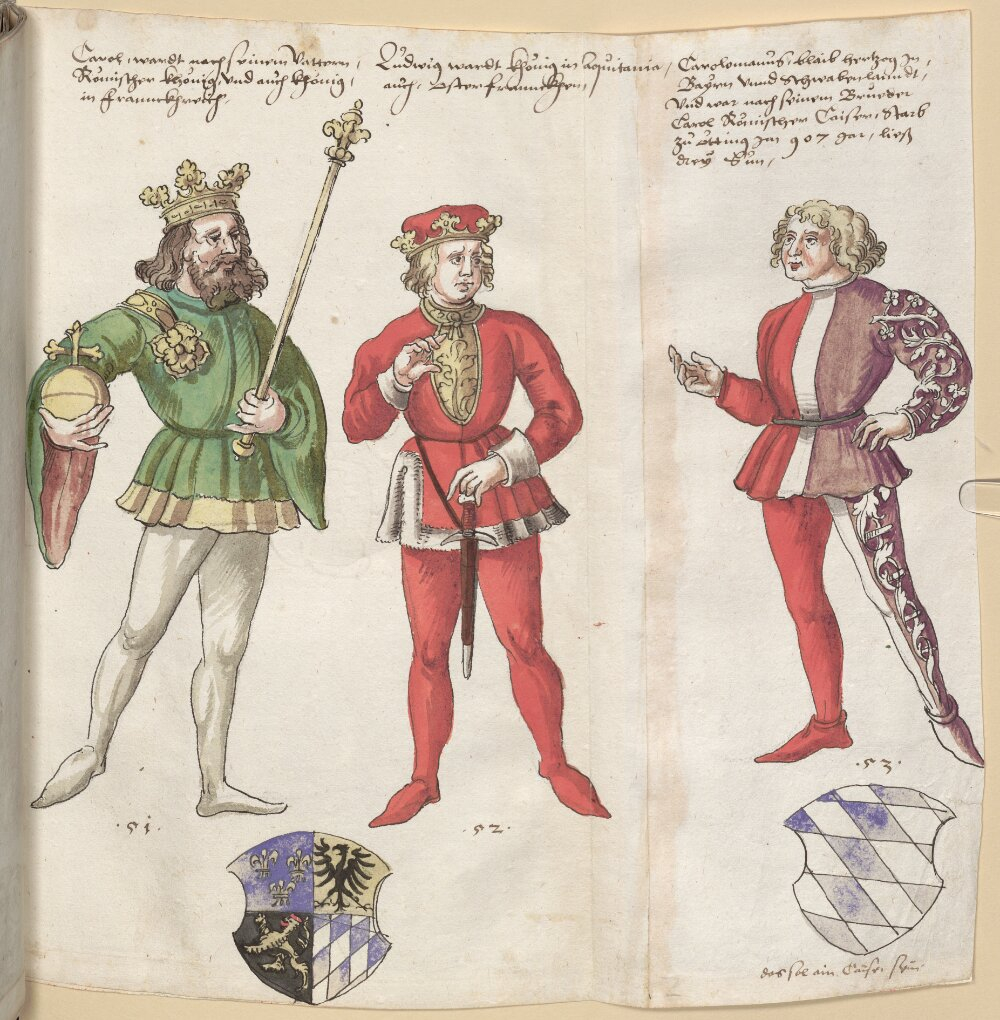 Carol, wardt nach seinem Vattern,
Römischer khönig, vnd auch khönig,
in Frannckhreich.
Ludwig wardt khönig in Aquitania,
auch. Osterfrannckhen,
Carolomanus, blaib hertzog in,
Bayrn vnnd Schwabenlanndt,
Vnd war nach seinem Brueder
Carol Römischer Caiser, Starb
zu Ötting jm 907 Jar, ließ
drey Sün,
.51.
.52.
.53.
das sol ain Caiser sein